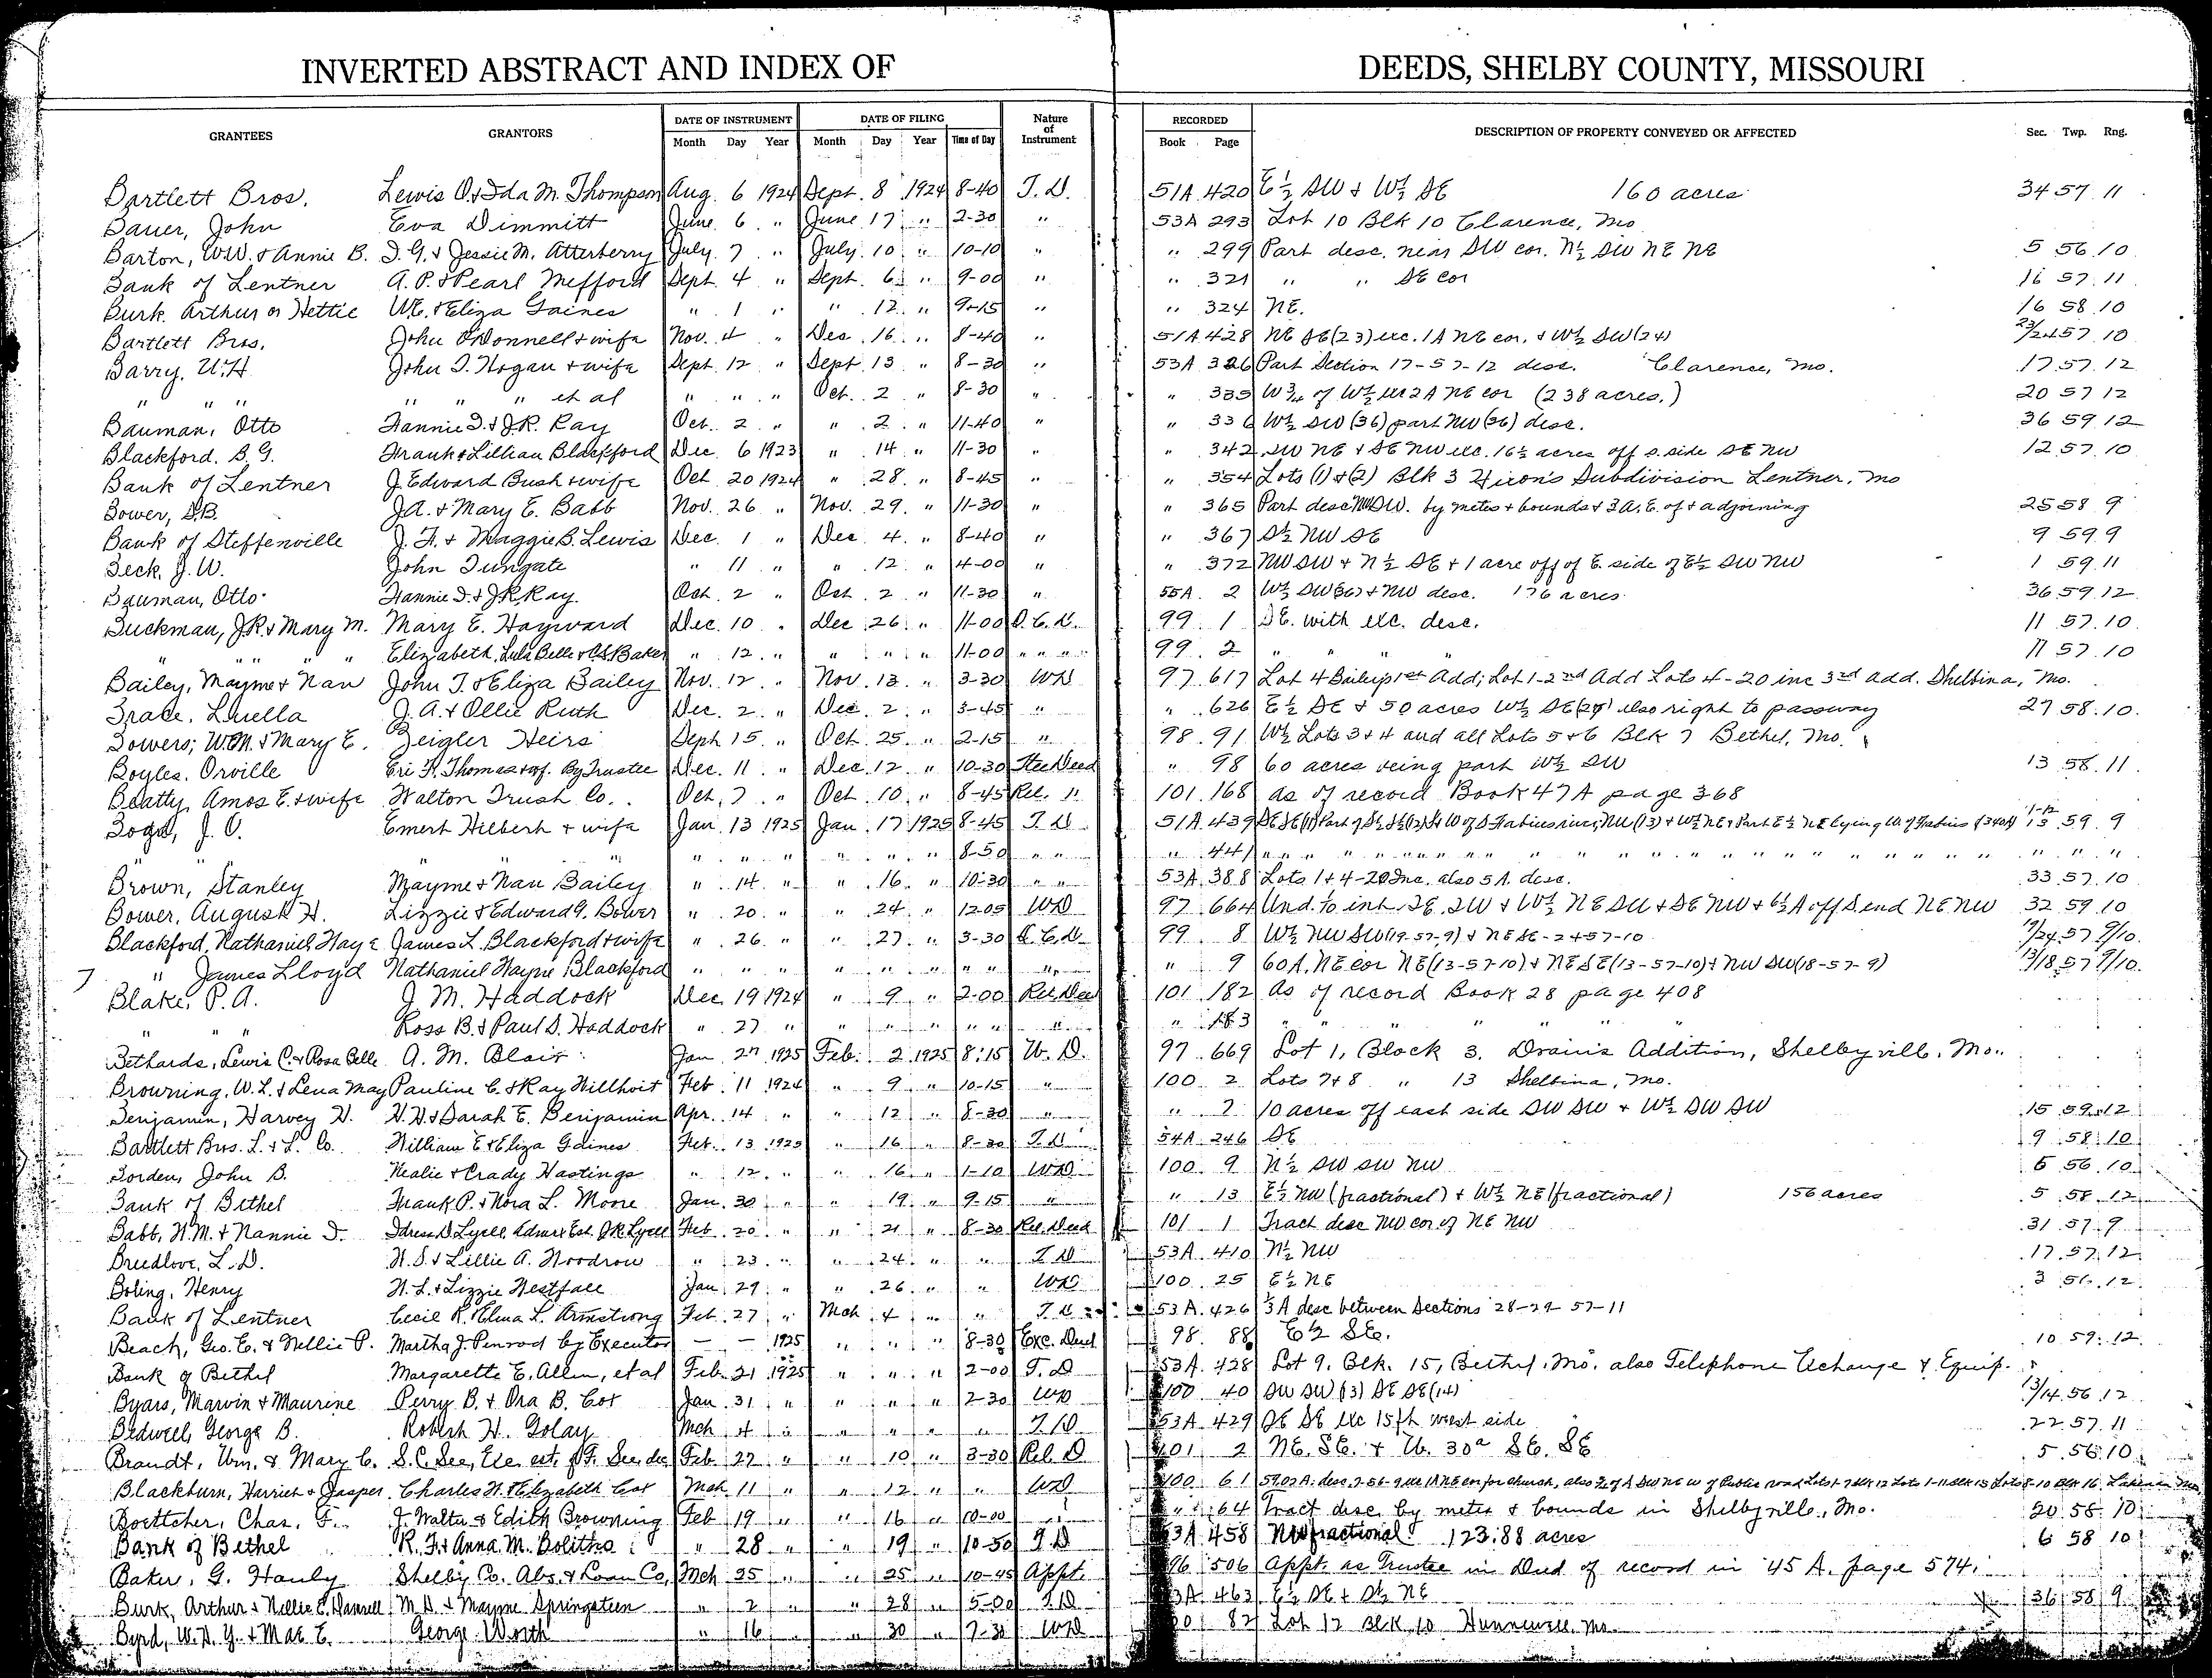 INVERTED ABSTRACT AND INDEX OF DEEDS, SHELBY COUNTY, MISSOURI
GRANTEES GRANTORS DATE OF INSTRUMENT DATE OF FILING Nature of Instrument RECORDED DESCRIPTION OF PROPERTY CONVEYED OR AFFECTED Sec. Twp. Rng.
Month Day Year Month Day Year Time of Day Book Page
Bartlett Bros. Lewis O. & Ida M. Thompson Aug. 6 1924 Sept. 8 1924 8-40 T. D. 51A 420 E½ SW & W½ SE 160 acres 34 57 11
Bauer, John Eva Dimmitt June 6 " June 17 " 2-30 " 53A 293 Lot 10 Blk 10 Clarence, Mo
Barton, W.W. & Annie B. I. G. & Jessie M. Atterberry July 7 " July 10 " 10-10 " " 299 Part desc. near SW cor. N½ SW NE NE 5 56 10
Bank of Lentner A. P. & Pearl Mefford Sept 4 " Sept. 6 " 9-00 " " 321 " " SE cor 16 57 11
Burk. Arthur or Hettie W.E. & Eliza Gaines " 1 " " 12 " 9-15 " " 324 NE. 16 58 10
Bartlett Bros. John O'Donnell & wife Nov. 4 " Dec. 16 " 8-40 " 51A 428 NE SE (23) exc. 1A NE cor. & W½ SW (24) 23/24 57 10
Barry, W.H John T. Hogan & wife Sept. 12 " Sept 13 " 8-30 " 53A 326 Part Section 17-57-12 desc. Clarence, Mo. 17 57 12
" " " " " " et al " " " Oct. 2 " 8-30 " " 335 W¾ of W½ exc 2A NE cor (238 acres.) 20 57 12
Bauman, Otto Fannie I. & J.R. Ray Oct. 2 " " 2 " 11-40 " " 336 W½ SW (36) part NW (36) desc. 36 59 12
Blackford. B. G. Frank & Lillian Blackford Dec. 6 1923 " 14 " 11-30 " " 342 SW NE & SE NW exc. 16½ acres off S. side SE NW 12 57 10
Bank of Lentner J. Edward Bush & wife Oct 20 1924 " 28 " 8-45 " " 354 Lots (1) & (2) Blk 3 Hixon's Subdivision Lentner, Mo
Bower, D.B. J.A. & Mary E. Babb Nov. 26 " Nov. 29 " 11-30 " " 365 Part desc NW SW. by metes & bounds & 3 A. E. of & adjoining 25 58 9
Bank of Steffenville J. F. & Maggie B. Lewis Dec. 1 " Dec. 4 " 8-40 " " 367 S½ NW SE 9 59 9
Beck, J. W. John Tungate " 11 " " 12 " 4-00 " " 372 NW SW & N½ SE & 1 acre off of E. side of E½ SW NW 1 59 11
Bauman, Otto Fannie I. & J.R. Ray. Oct. 2 " Oct. 2 " 11-30 " 55A. 2 W½ SW (36) & NW desc. 176 acres 36 59 12
Buckman, J.R. & Mary M. Mary E. Hayward Dec. 10 " Dec 26 " 11-00 Q. C. D. 99 1 SE. with exc. desc. 11 57 10
" " " " Elizabeth, Lula Belle & C.S. Baker " 12 " " " " 11-00 " " " 99 2 " " " " 11 57 10
Bailey, Mayme & Nan John T. & Eliza Bailey Nov. 12 " Nov. 13 " 3-30 WD 97 617 Lot 4 Baileys 1st Add; Lot 1-2nd Add Lots 4-20 inc 3rd add. Shelbina, Mo.
Brace, Luella J. A. & Ollie Ruth Dec. 2 " Dec. 2 " 3-45 " " 626 E½ SE & 50 acres W½ SE (27) also right to passway 27 58 10
Bowers; W.M. & Mary E. Zeigler Heirs Sept 15 " Oct. 25 " 2-15 " 98 91 W½ Lots 3 & 4 and all Lots 5 & 6 Blk 7 Bethel, Mo.
Boyles. Orville Eri F. Thomas & wf. By Trustee Dec. 11 " Dec. 12 " 10-30 Stee Deed " 98 60 acres being part W½ SW 13 58 11
Beatty, Amos E. & wife Walton Trust Co. Oct. 7 " Oct. 10 " 8-45 Rel. " 101 168 As of record Book 47A page 368
J. O. Emert Hilbert & wife Jan. 13 1925 Jan. 17 1925 8-45 T. D 51A 439 59 9
" " " " " " " " 8-50 " " " 441 " " " " " "
Brown, Stanley Mayme & Nan Bailey " 14 " " 16 " 10-30 " " 53A 388 Lots 1 & 4-20 Inc. also 5 A. desc. 33 57 10
Bower, August H. Lizzie & Edward G. Bower " 20 " " 24 " 12-05 WD 97 664 Und. ½ int. SE SW & W½ NE SW & SE NW & 6½ A off S. end NE NW 32 59 10
Blackford, Nathaniel Hayne James L. Blackford & wife " 26 " " 27 " 3-30 Q. C. D. 99 8 W½ NW SW (19-57-9) & NE SE-24-57-10 19/24 57 9/10
" James Lloyd Nathaniel Hayne Blackford " " " " " " " " " " 9 60 A. NE cor NE (13-57-10) & NE SE (13-57-10) & NW SW (18-57-9) 13/18 57 9/10
Blake, P. A. J. M. Haddock Dec 19 1924 " 9 " 2-00 Rel. Deed 101 182 As of record Book 28 page 408
" " " Ross B. & Paul S. Haddock " 27 " " " " " " " " 183 " " " " " "
Bethards, Lewis C. & Rosa Belle A. M. Blair Jan 27 1925 Feb. 2 1925 8:15 W. D. 97 669 Lot 1, Block 3. Drain's Addition, Shelbyville, Mo.
Browning, W. L. & Lena May Pauline C. & Ray Willhoit Feb 11 1924 " 9 " 10-15 " 100 2 Lots 7 & 8 " 13 Shelbina, Mo.
Benjamin, Harvey H. H. H. & Sarah E. Benjamin Apr. 14 " " 12 " 8-30 " " 7 10 acres off east side SW SW & W½ SW SW 15 59 12
Bartlett Bros. L. & L. Co. William E & Eliza Gaines Feb. 13 1925 " 16 " 8-30 T. D 54A 246 SE 9 58 10
Borden, John B. Nealie & Crady Hastings " 12 " " 16 " 1-10 WD 100 9 N½ SW SW NW 6 56 10
Bank of Bethel Frank P. & Nora L. Moore Jan. 30 " " 19 " 9-15 " " 13 E½ NW (fractional) & W½ NE (fractional) 156 acres 5 58 12
Babb, H. M. & Nannie I. Lyell, Admr Est. J.R. Lyell Feb 20 " " 21 " 8-30 Rel. Deed 101 1 Tract desc NW cor of NE NW 31 57 9
Breedlove, L. D. H. S. & Lillie A. Woodrow " 23 " " 24 " " T D 53A 410 N½ NW 17 57 12
Boling, Henry H. L. & Lizzie Westfall Jan 29 " " 26 " " WD 100 25 E½ NE 3 56 12
Bank of Lentner Cecil R. & Elma L. Armstrong Feb. 27 " Mch 4 " " T. D 53A. 426 ⅓ A desc between Sections 28-29 57-11
Beach, Geo. E. & Nellie P. Martha J. Penrod by Executor — — 1925 " " " 8-30 Exc. Deed 98 88 E½ SE. 10 59 12
Bank of Bethel Margarette E. Allen, et al Feb. 21 1925 " " " 2-00 T. D 53A. 428 Lot 9. Blk. 15, Bethel, Mo. also Telephone Exchange & Equip.
Byars, Marvin & Maurine Perry B. & Ora B. Cox Jan 31 " " " " 2-30 WD 100 40 SW SW (13) SE SE (14) 13/14 56 12
Bedwell, George B. Robert H. Golay Mch 4 " " " " " T. D 53A 429 SE SE exc 15 ft west side 22 57 11
Brandt, Wm. & Mary C. S. C. See, Exe. est. See, dec Feb 27 " " 10 " 3-30 Rel. D 101 2 NE. SE. & W. 30a SE. SE 5 56 10
Blackburn, Harriet & Jasper Charles W. & Elizabeth Cox Mch 11 " " 12 " " WD 100 61
Boettcher, Chas. F. J. Walter & Edith Browning Feb 19 " " 16 " 10-00 " " 64 Tract desc by metes & bounds in Shelbyville, Mo. 20 58 10
Bank of Bethel R. F. & Anna M. Bolitho " 28 " " 19 " 10-50 T. D 53A 458 NW fractional 123.88 acres 6 58 10
Baker, G. Hauly Shelby Co. Abs. & Loan Co. Mch 25 " " 25 " 10-45 Appt. 96 506 Appt. as Trustee in Deed of record in 45 A. page 574.
Burk, Arthur & M. D. & Mayme Springsteen " 2 " " 28 " 5-00 T. D 53A 463 E½ SE & S½ NE 36 58 9
Byrd, W. D. Y. & Mae E. George Worth " 16 " " 30 " 7-30 WD 100 82 Lot 12 Blk 10 Hunnewell, Mo.